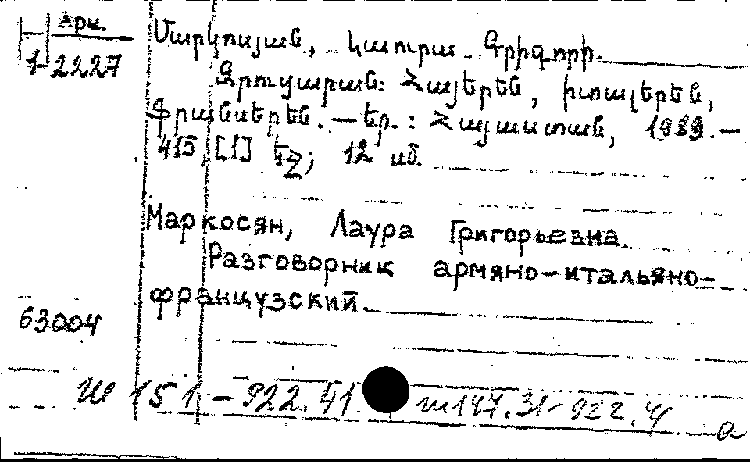 Арм.
1-2227
Մարկոսյան, Լաուրա Գրիգորի.
Զրուցարան: Հայերեն, իտալերեն,
ֆրանսերեն. — Եր.: Հայաստան, 1989. —
415, [1] էջ; 12 սմ.
Маркосян, Лаура Григорьевна.
Разговорник армяно-итальяно-
французский.
63004
Ш 151-922.41 Ш147.31-922.4
а